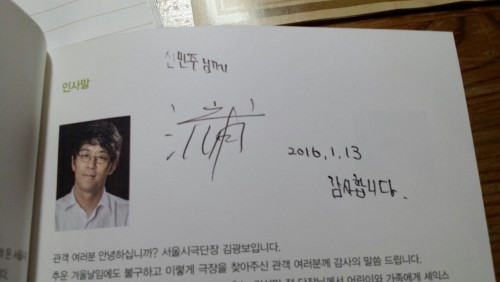 신민주 님께
인사말
2016.1.13
감사합니다.
관객 여러분 안녕하십니까? 서울시극단장 김광보입니다.
추운 겨울날임에도 불구하고 이렇게 극장을 찾아주신 관객 여러분께 감사의 말씀 드립니다.
전 단장님께서 어린이와 가족에게 셰익스